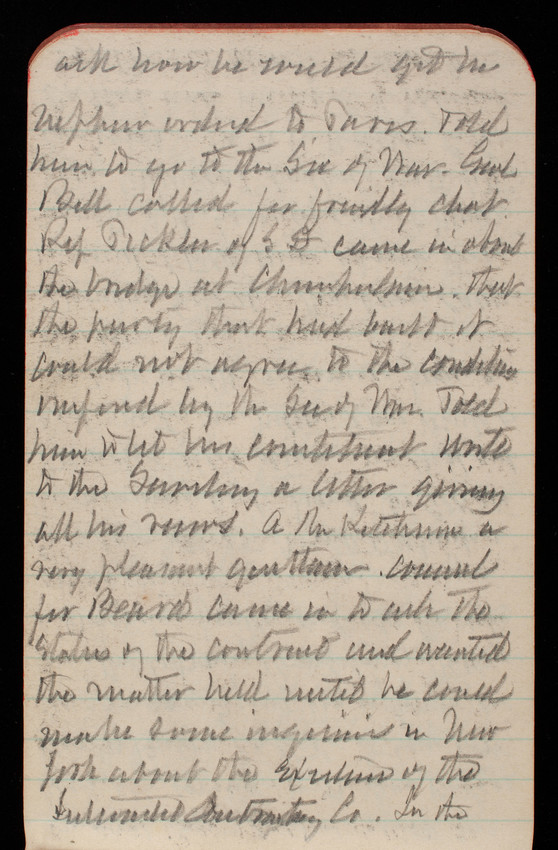 ask how he could get his
nephew ordered to Paris. Told
him to go to the Sec of War. Genl
Bell called for friendly chat
Rep Pickler of S D came in about
the bridge at Chamberlain. that
the party that had built it
could not agree to the condition
imposed by the Sec of War. Told
him to let his constituent write
to the Secretary a letter giving
all his views. A Mr Ketchum a
very pleasant gentleman. counsel
for Beard came in to ask the
status of the contract and wanted
the matter held until he could
make some inquiries in New
York about the of the
Contracting Co. In the